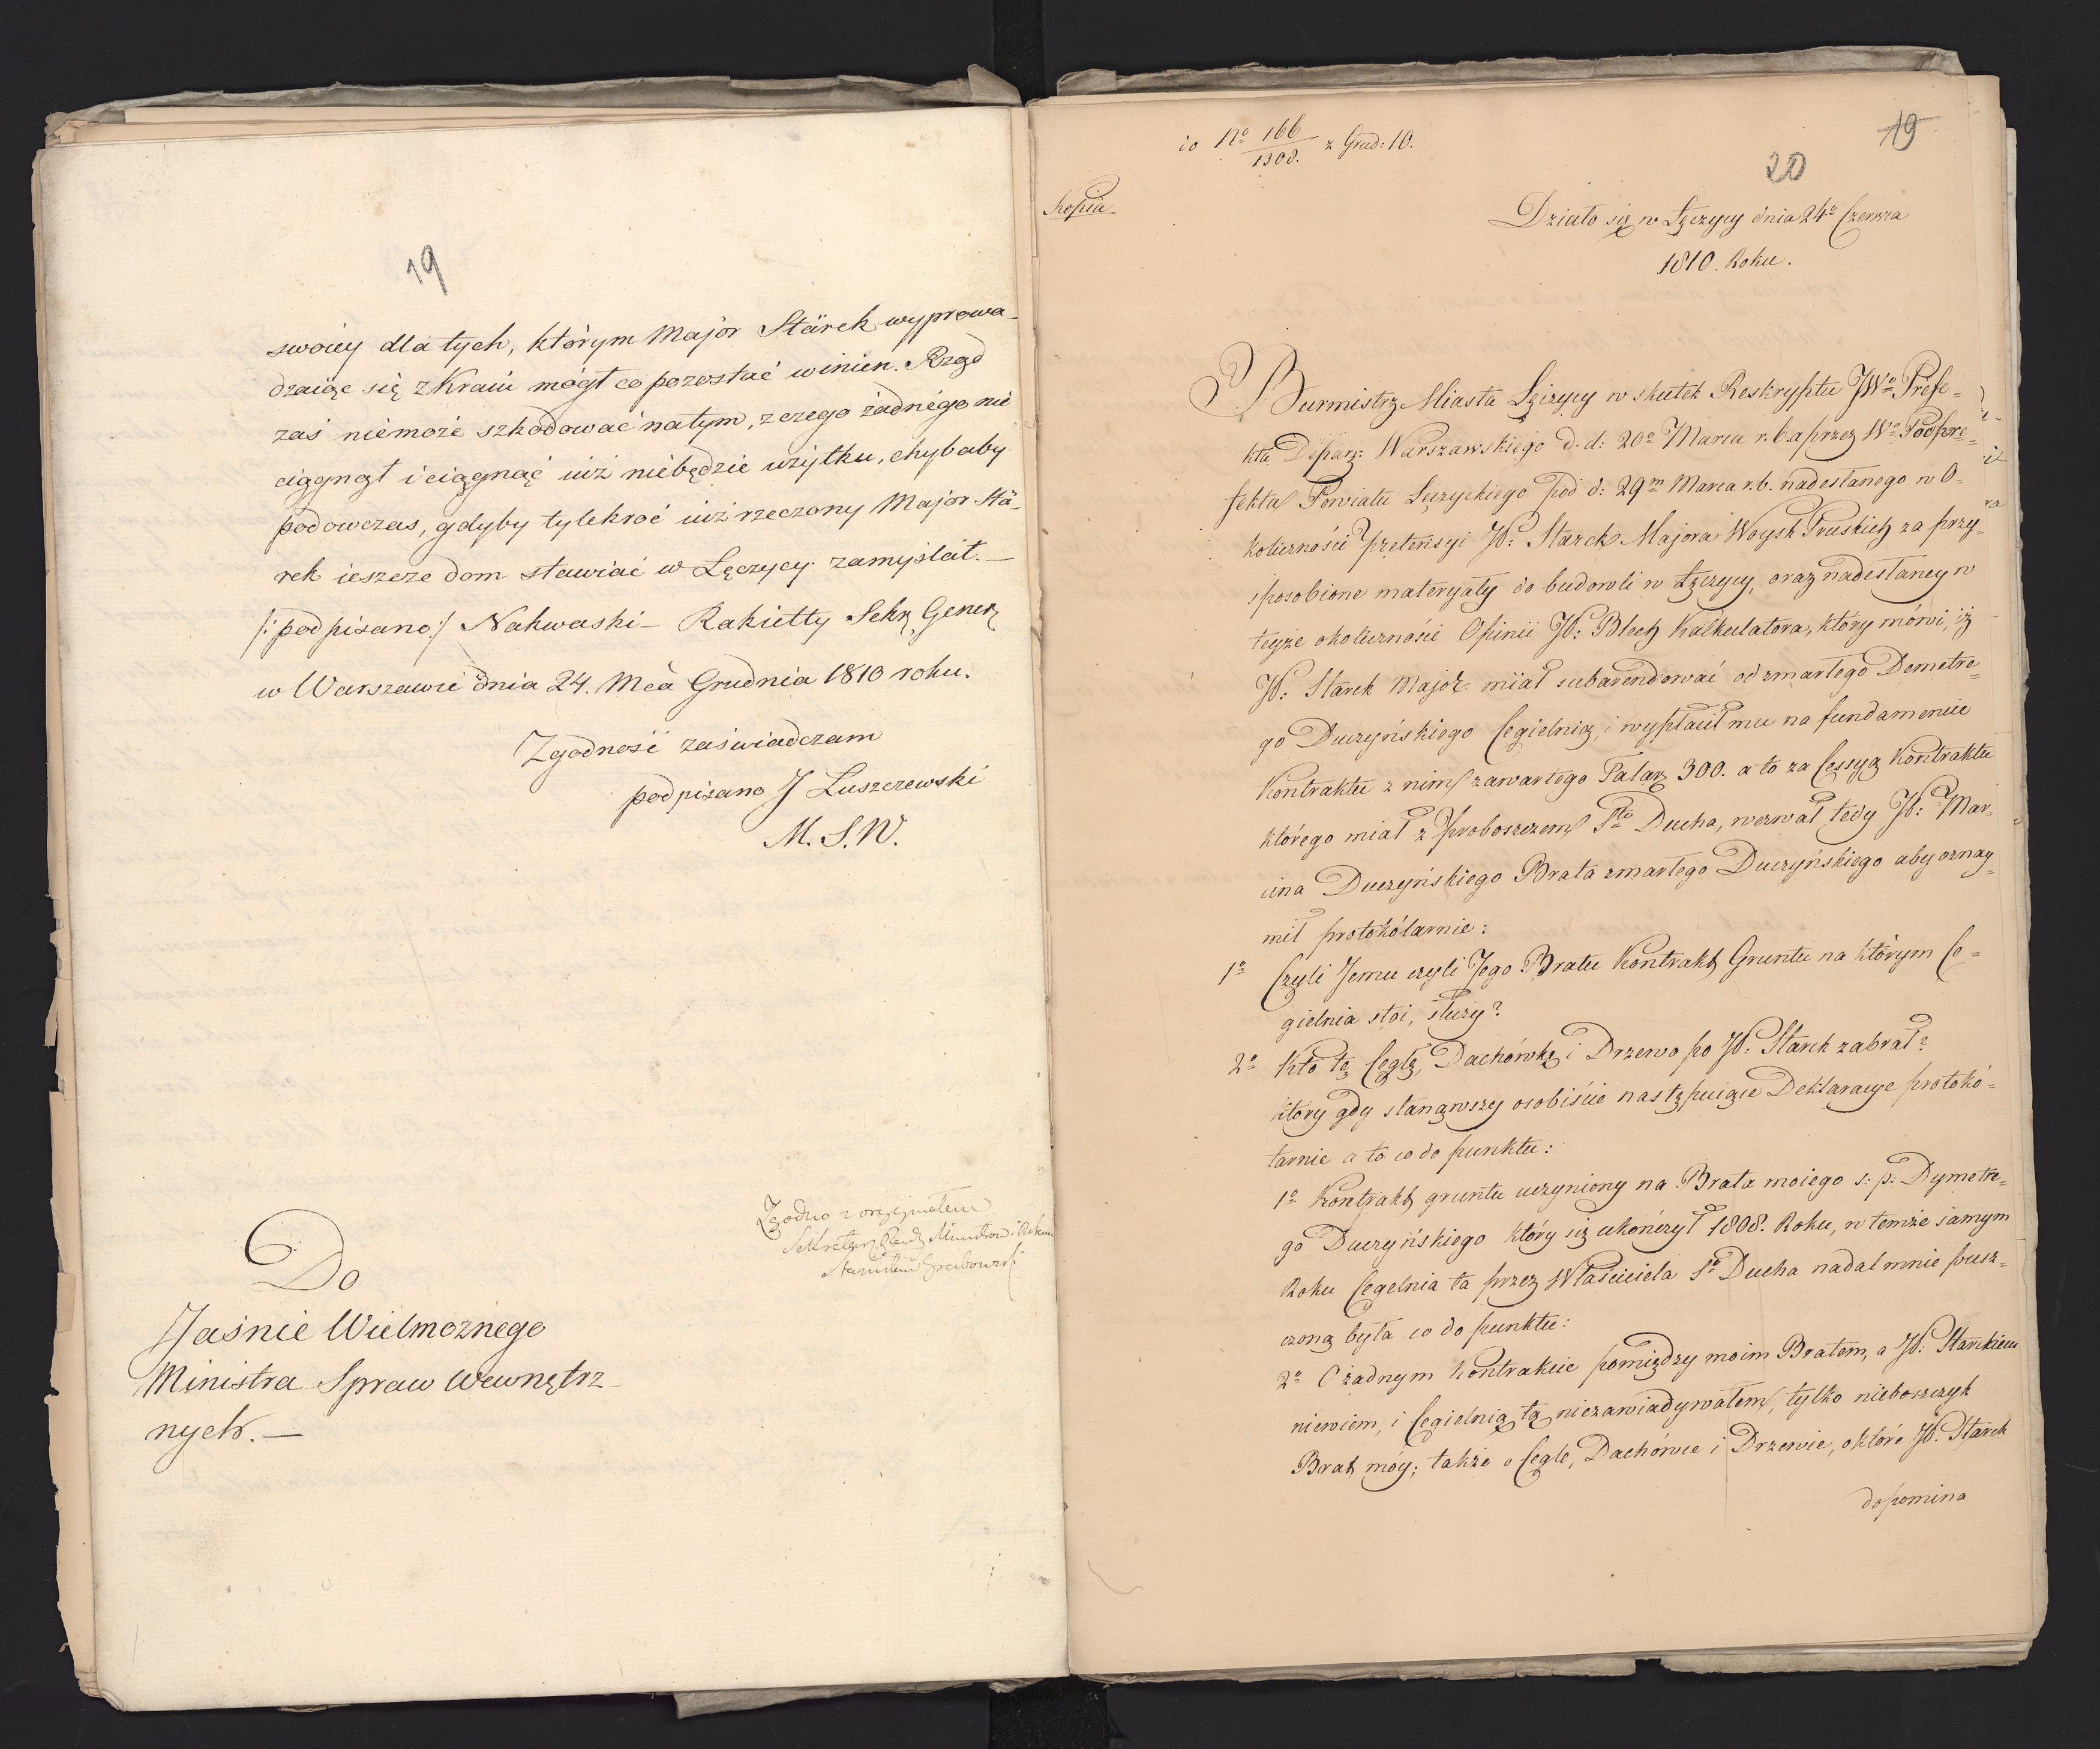 19
swoiey dla tych, którym Major Stärck wyprowa-
dzaiąc się z Kraiu mógł co pozostać winien. Rząd
zaś niemoże szkodować natym, z czego żadnego nie
ciągnął i ciągnąć iuż niebędzie użytku, chybaby
podowczas, gdyby tylekroć iuż rzeczony Major Stä-
rek ieszcze dom stawiać w Łęczycy zamyślał. —
/: podpisano :/ Nakwaski – Rakietty Sekr. Gener.
w Warszawie dnia 24. Mca Grudnia 1810 roku.
Zgodność zaświadczam
podpisano J Luszczewski
M. S. W.
Zgodno z oryginałem
Sekretarz Rady Ministrów
Stanisław Grabowski
Do
Jaśnie Wielmożnego
Ministra Spraw Wewnętrz-
nych. —
19
20
io No 166/1308. z Grud: 10.
Kopia
Działo się w Łęczycy dnia 24o Czerwca
1810. Roku.
Burmistrz Miasta Łęczycy w skutek Reskryptu JWo Prefe=
kta Depar: Warszawskiego d. d: 20o Marca r. b. a przez Wo Podpre=
fekta Powiatu Łęczyckiego pod d: 29m Marca r. b. nadesłanego w O-
koliczności pretensyi W: Starck Majora Woysk Pruskich za przy-
sposobione materyały do budowli w Łęczycy, oraz nadesłaney w
teyże okoliczności Opinii W: Blech Kalkulatora, który mówi, iż
W: Starck Major miał subarendować od zmarłego Demetre=
go Duczyńskiego Cegielnią, i wypłacił mu na fundamencie
Kontraktu z nim zawartego Talar. 300. a to za Cessyą Kontraktu
którego miał z Proboszczem Sto Ducha, wezwał tedy W: Mar-
cina Duczyńskiego Brata zmarłego Duczyńskiego aby oznay=
mił protokólarnie:
1o Czyli Jemu czyli Jego Bratu Kontrakt Gruntu na którym Ce=
gielnia stoi, służy?
2o Kto tę Cegłę, Dachówkę i Drzewo po W: Starck zabrał?
który gdy stanąwszy osobiście następuiące Deklaracye protokó=
larnie a to co do punktu:
1o Kontrakt gruntu uczyniony na Brata moiego s: p: Dymetre=
go Duczyńskiego który się ukończył 1808. Roku, w temże samym
Roku Cegelnia ta przez Właściciela So Ducha nadal mnie pusz=
czoną była co do punktu:
2o O żadnym Kontrakcie pomiędzy moim Bratem, a W: Starckiem
niewiem, i Cegielnią tą niezawiadywałem, tylko nieboszczyk
Brat móy; także o Cegle, Dachówce i Drzewie, o które W: Starck
dopomina